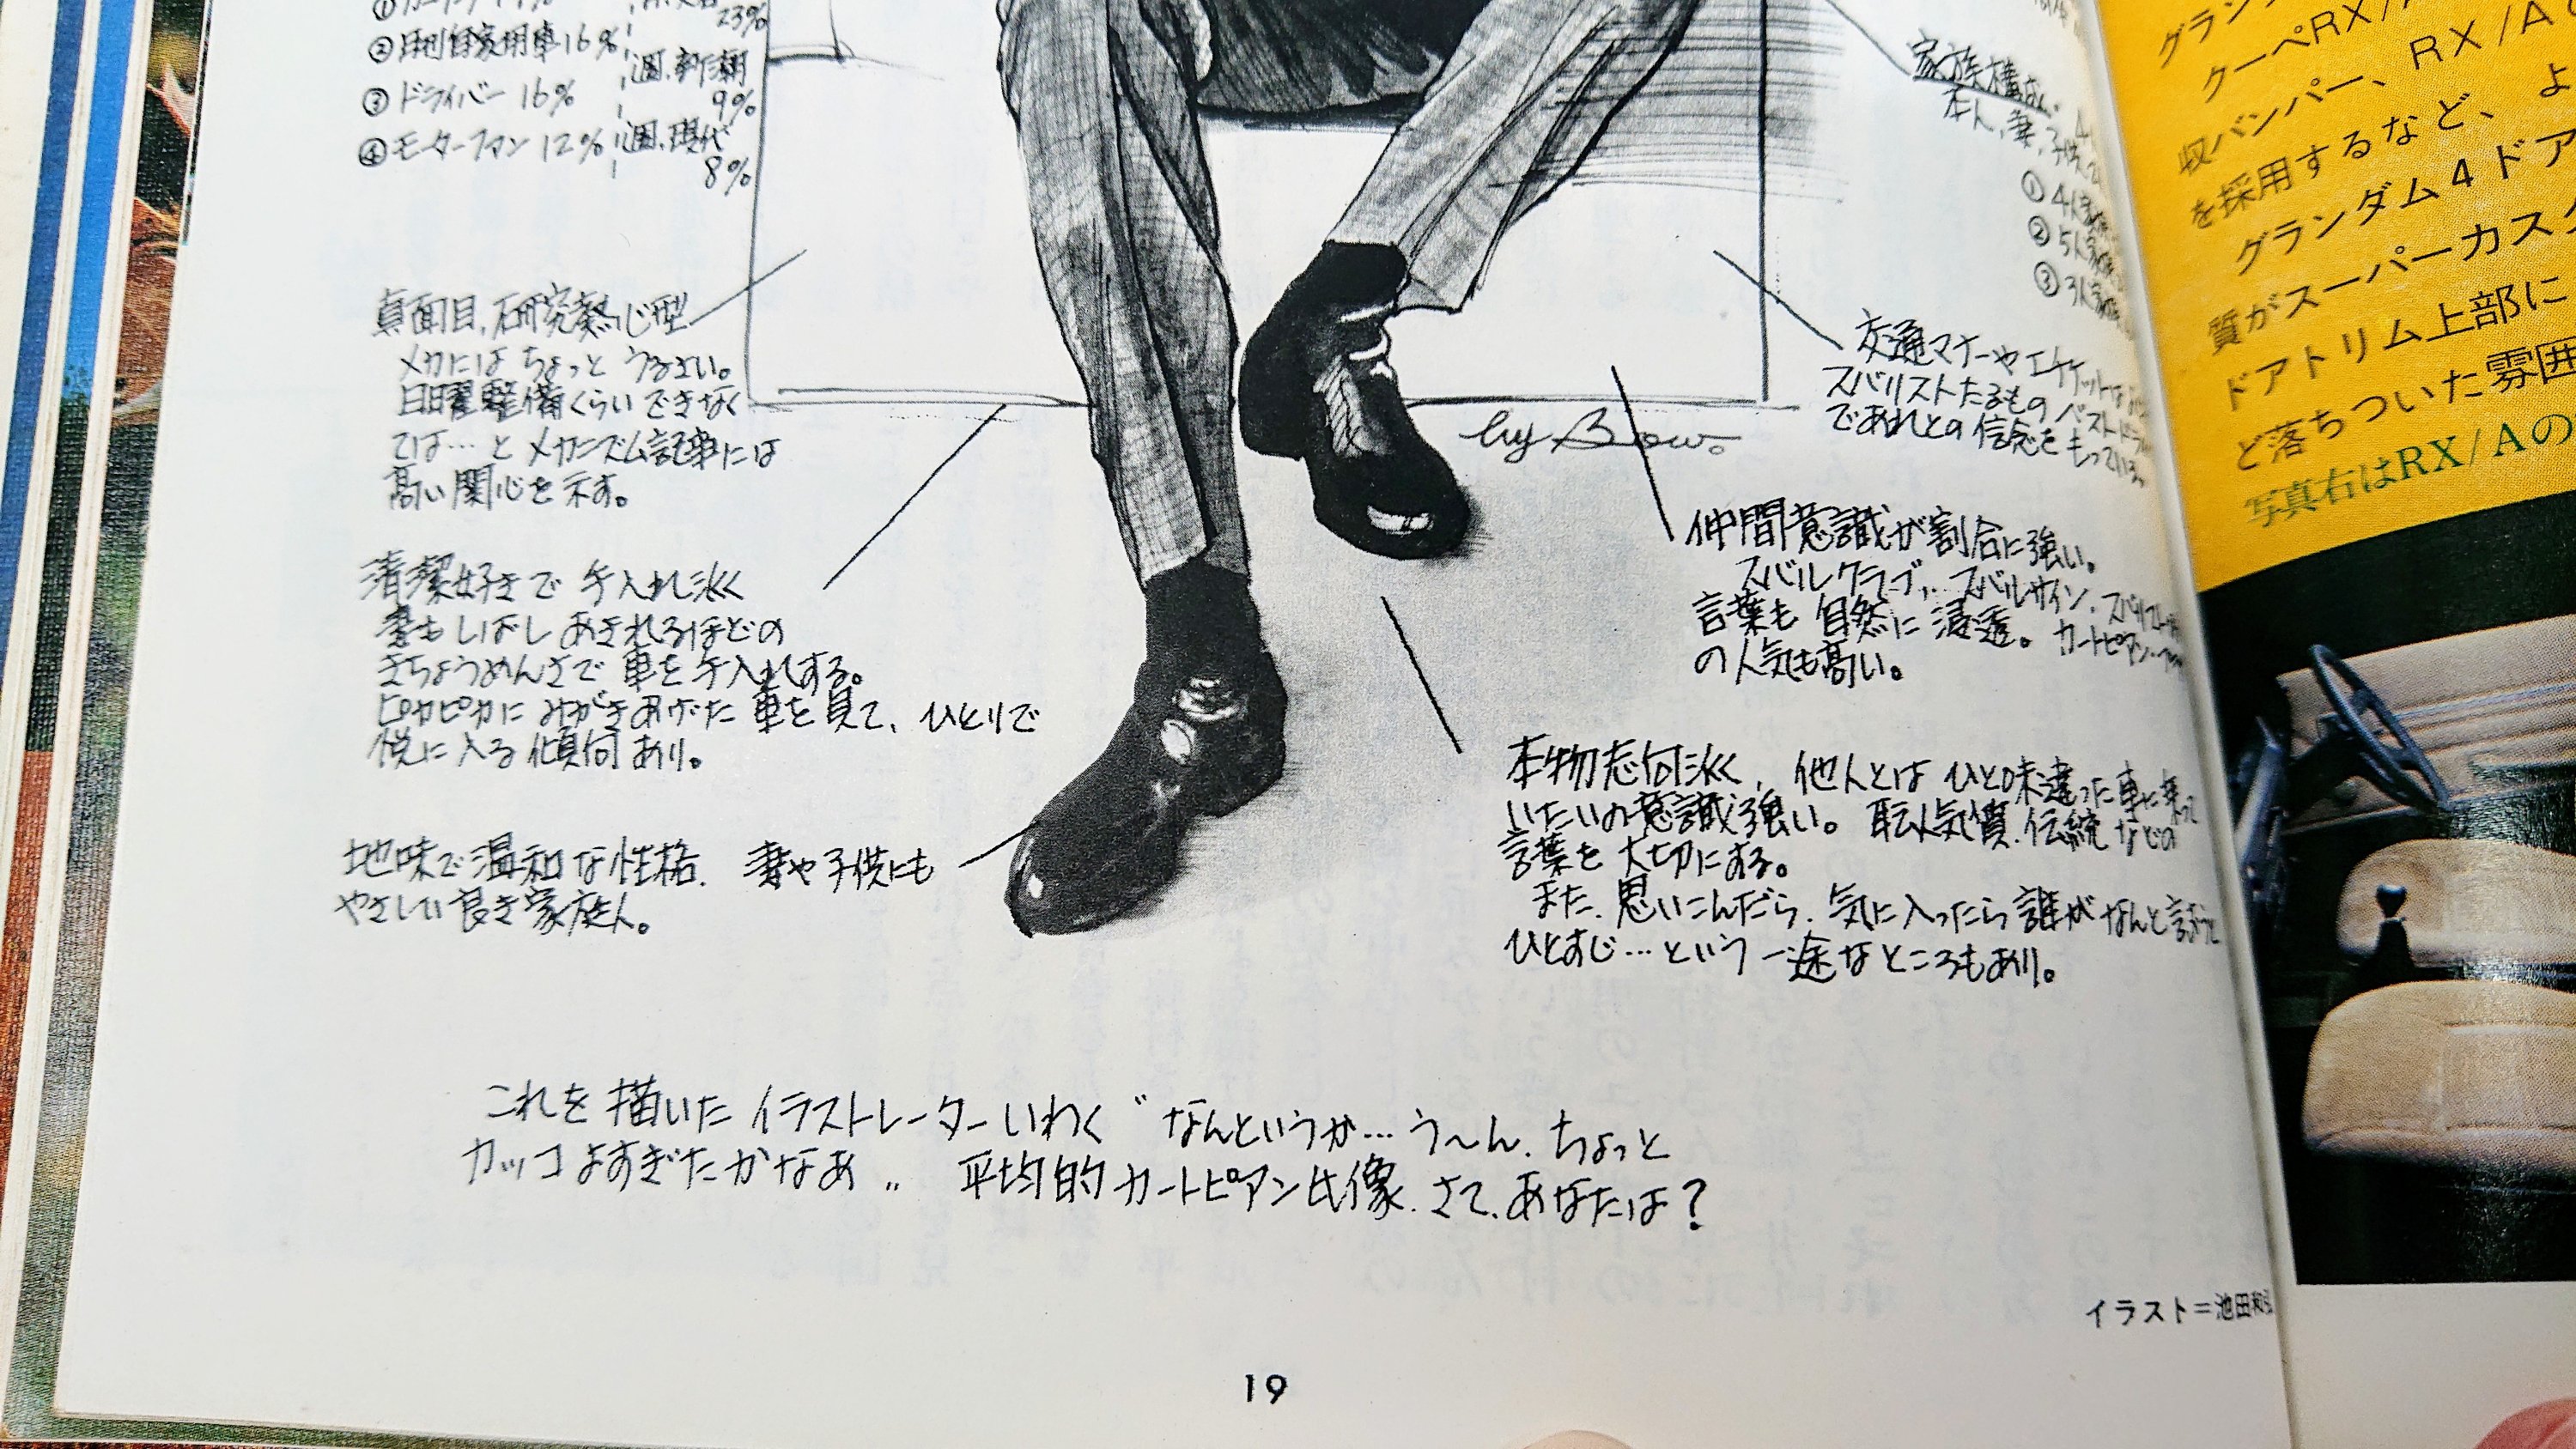 23%
②月刊自家用車16%
週.新潮
9%
③ドライバー 16%
④モーターファン 12%
週.現代
8%
真面目、研究熱心型
メカにはちょっと うるさい。
日曜整備くらいできなく
ては…とメカニズム記事には
高い関心を示す。
清潔好きで 手入れ深く
妻もしばし あきれるほどの
きちょうめんさで 車を手入れする。
ピカピカに みがきあげた 車を見て、ひとりで
悦に入る 傾向 あり。
地味で温和な性格. 妻や子供にも
やさしい良き家族人。
家族構成
本人、妻、子供
①4人家族
②5人家族
③3人家族
交通マナーやエチケット
スバリストたるもの ベストドライバー
であれとの信念をもっている。
by Bow.
仲間意識が割合に強い。
スバルクラブ、スバルサイン、
言葉も 自然に 浸透。カートピアン・
の人気も高い。
本物志向深く、他人とは ひと味違った車に乗って
いたいの意識強い。職人気質、伝統などの
言葉を 大切にする。
また、思いこんだら、気に入ったら誰がなんと言おうと
ひとすじ…という 一途なところもあり。
これを描いた イラストレーターいわく〝なんというか…う〜ん、ちょっと
カッコよすぎたかなあ〟 平均的カートピアン氏像、さて、あなたは?
イラスト=池田和弘
19
クーペRX/A
RX/A
収バンパー、
を採用するなど、よ
グランダム4ドア
質がスーパーカスタ
ドアトリム上部に
ど落ちついた雰囲
写真右はRX/Aの